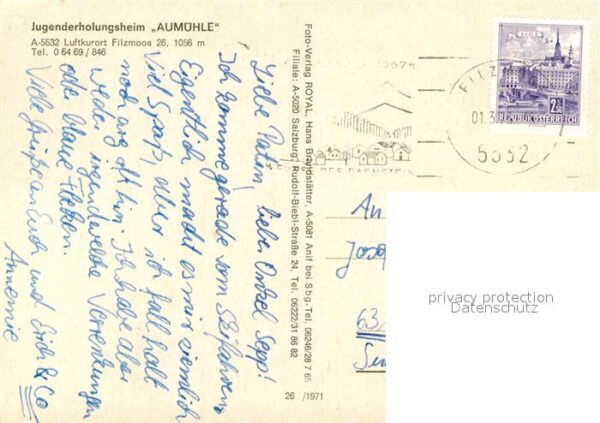 Jugenderholungsheim „AUMÜHLE"
A-5532 Luftkurort Filzmoos 26, 1056 m
Tel. 0 64 69 / 846
Liebe Patin, lieber Onkel Sepp!
Ich komme gerade vom Skifahren.
Eigentlich macht es mir ziemlich
viel Spaß, aber ich fall halt
noch recht oft hin. Ich habe aber
weder irgendwelche Verrenkungen
oder blaue Flecken.
Viele Grüße an Euch und Erich & Co
Annemie
Foto-Verlag ROYAL, Hans Brandstätter, A-5081 Anif bei Sbg.-Tel. 06246/28 7 65
Filiale: A-5020 Salzburg, Rudolf-Biebl-Straße 24, Tel. 06222/31 86 82
26 /1971
1057
DES DACHSTEIN
FILZ
01.3
5532
LINZ
2.50
REPUBLIK ÖSTERREICH
An
Jose
63
privacy protection
Datenschutz